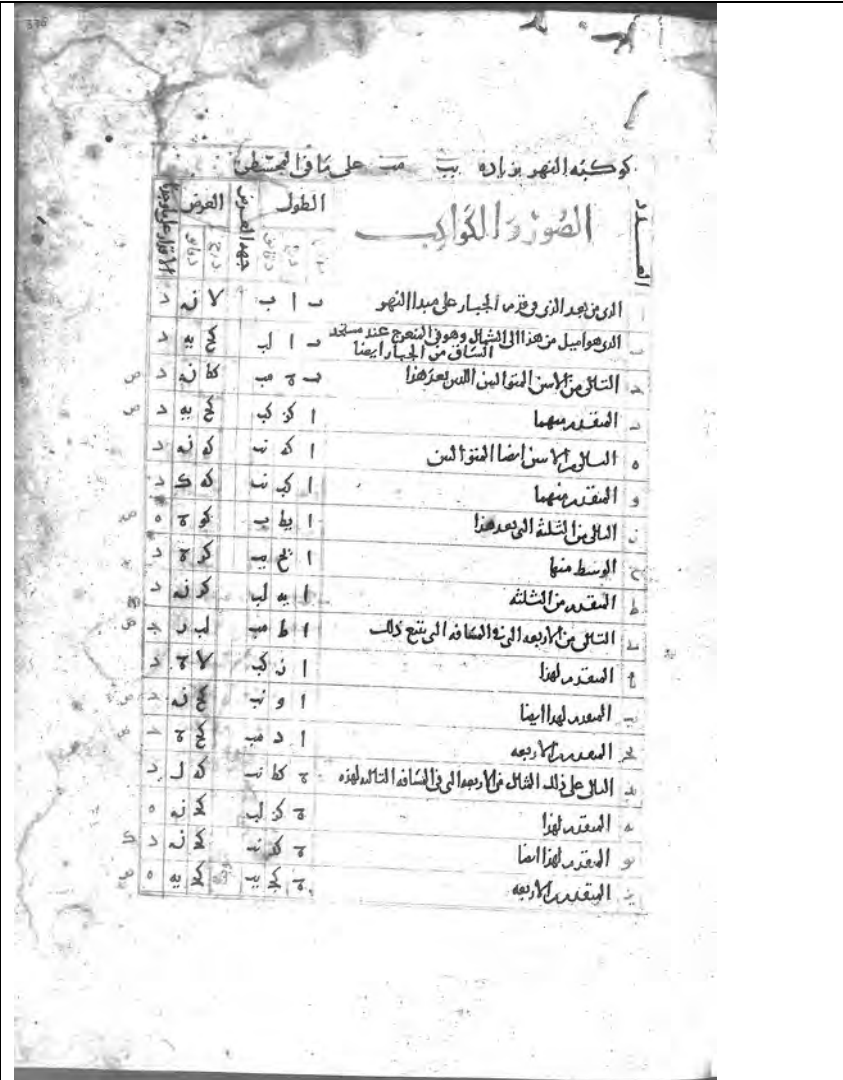 376
كوكبة النهر بزياده يب مب على ما فى المجسطى
العدد الصور والكواكب الطول جهة العرض العرض
درج دقايق درج دقايق
ا الذى من بعد الذى فى قدم الجبار على مبدا النهر ب ا ب لا ن د
ب الذى هو اميل من هذا الى الشمال وهو فى المنعرج عند مستنجد ب ا لب كح يه د
الساق من الجبار ايضا
ج التالى من الاثنين المتواليين اللذين بعد هذا ب ه مب كط ن د ص
د المتقدم منهما ا كز كب كح يه د ص
ه التالى من الاثنين ايضا المتواليين ا كه نب كه ن د
و المتقدم منهما ا كب نب كه ك د
ز التالى من الثلثة التى بعد هذا ا يط ب كو ه ه ص
ح الوسط منها ا يح يب كز ه د
ط المتقدم من الثلثه ا يه لب كز ن د
ى التالى من الاربعه التى فى المسافه التى تتبع ذلك ا ط مب لب ن ج ص
يا المتقدم لهذا ا ز كب لا ه د
يب المتقدم لهذا ايضا ا و نب كح ن د ص
يج المتقدم من الاربعه ا د مب كح ه د ص
يد التالى على ذلك المثال من الاربعه التى فى المسافه التاليه لهذه ه كط نب كه ل د
يه المتقدم لهذا ه كز لب كج ن ه
يو المتقدم لهذا ايضا ه كد نب كج ن د ك
يز المتقدم من الاربعه ه كج يب كج يه ه ص